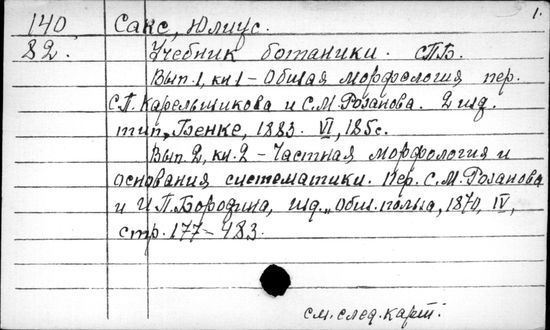 1.
140 Сакс, Юлиус.
82. Учебник ботаники. СПБ.
Вып. 1, кн 1 – Общая морфология пер.
С.П. Карельщикова и С.М. Розанова. 2 изд.
тип. Бенке, 1883. VI, 185 с.
Вып. 2, кн. 2 – Частная морфология и
основания систематики. Пер. С.М. Розанова
и И.П. Бородина, изд. „Общ. польза, 1870, IV,
стр. 177–483.
см. след. карт.